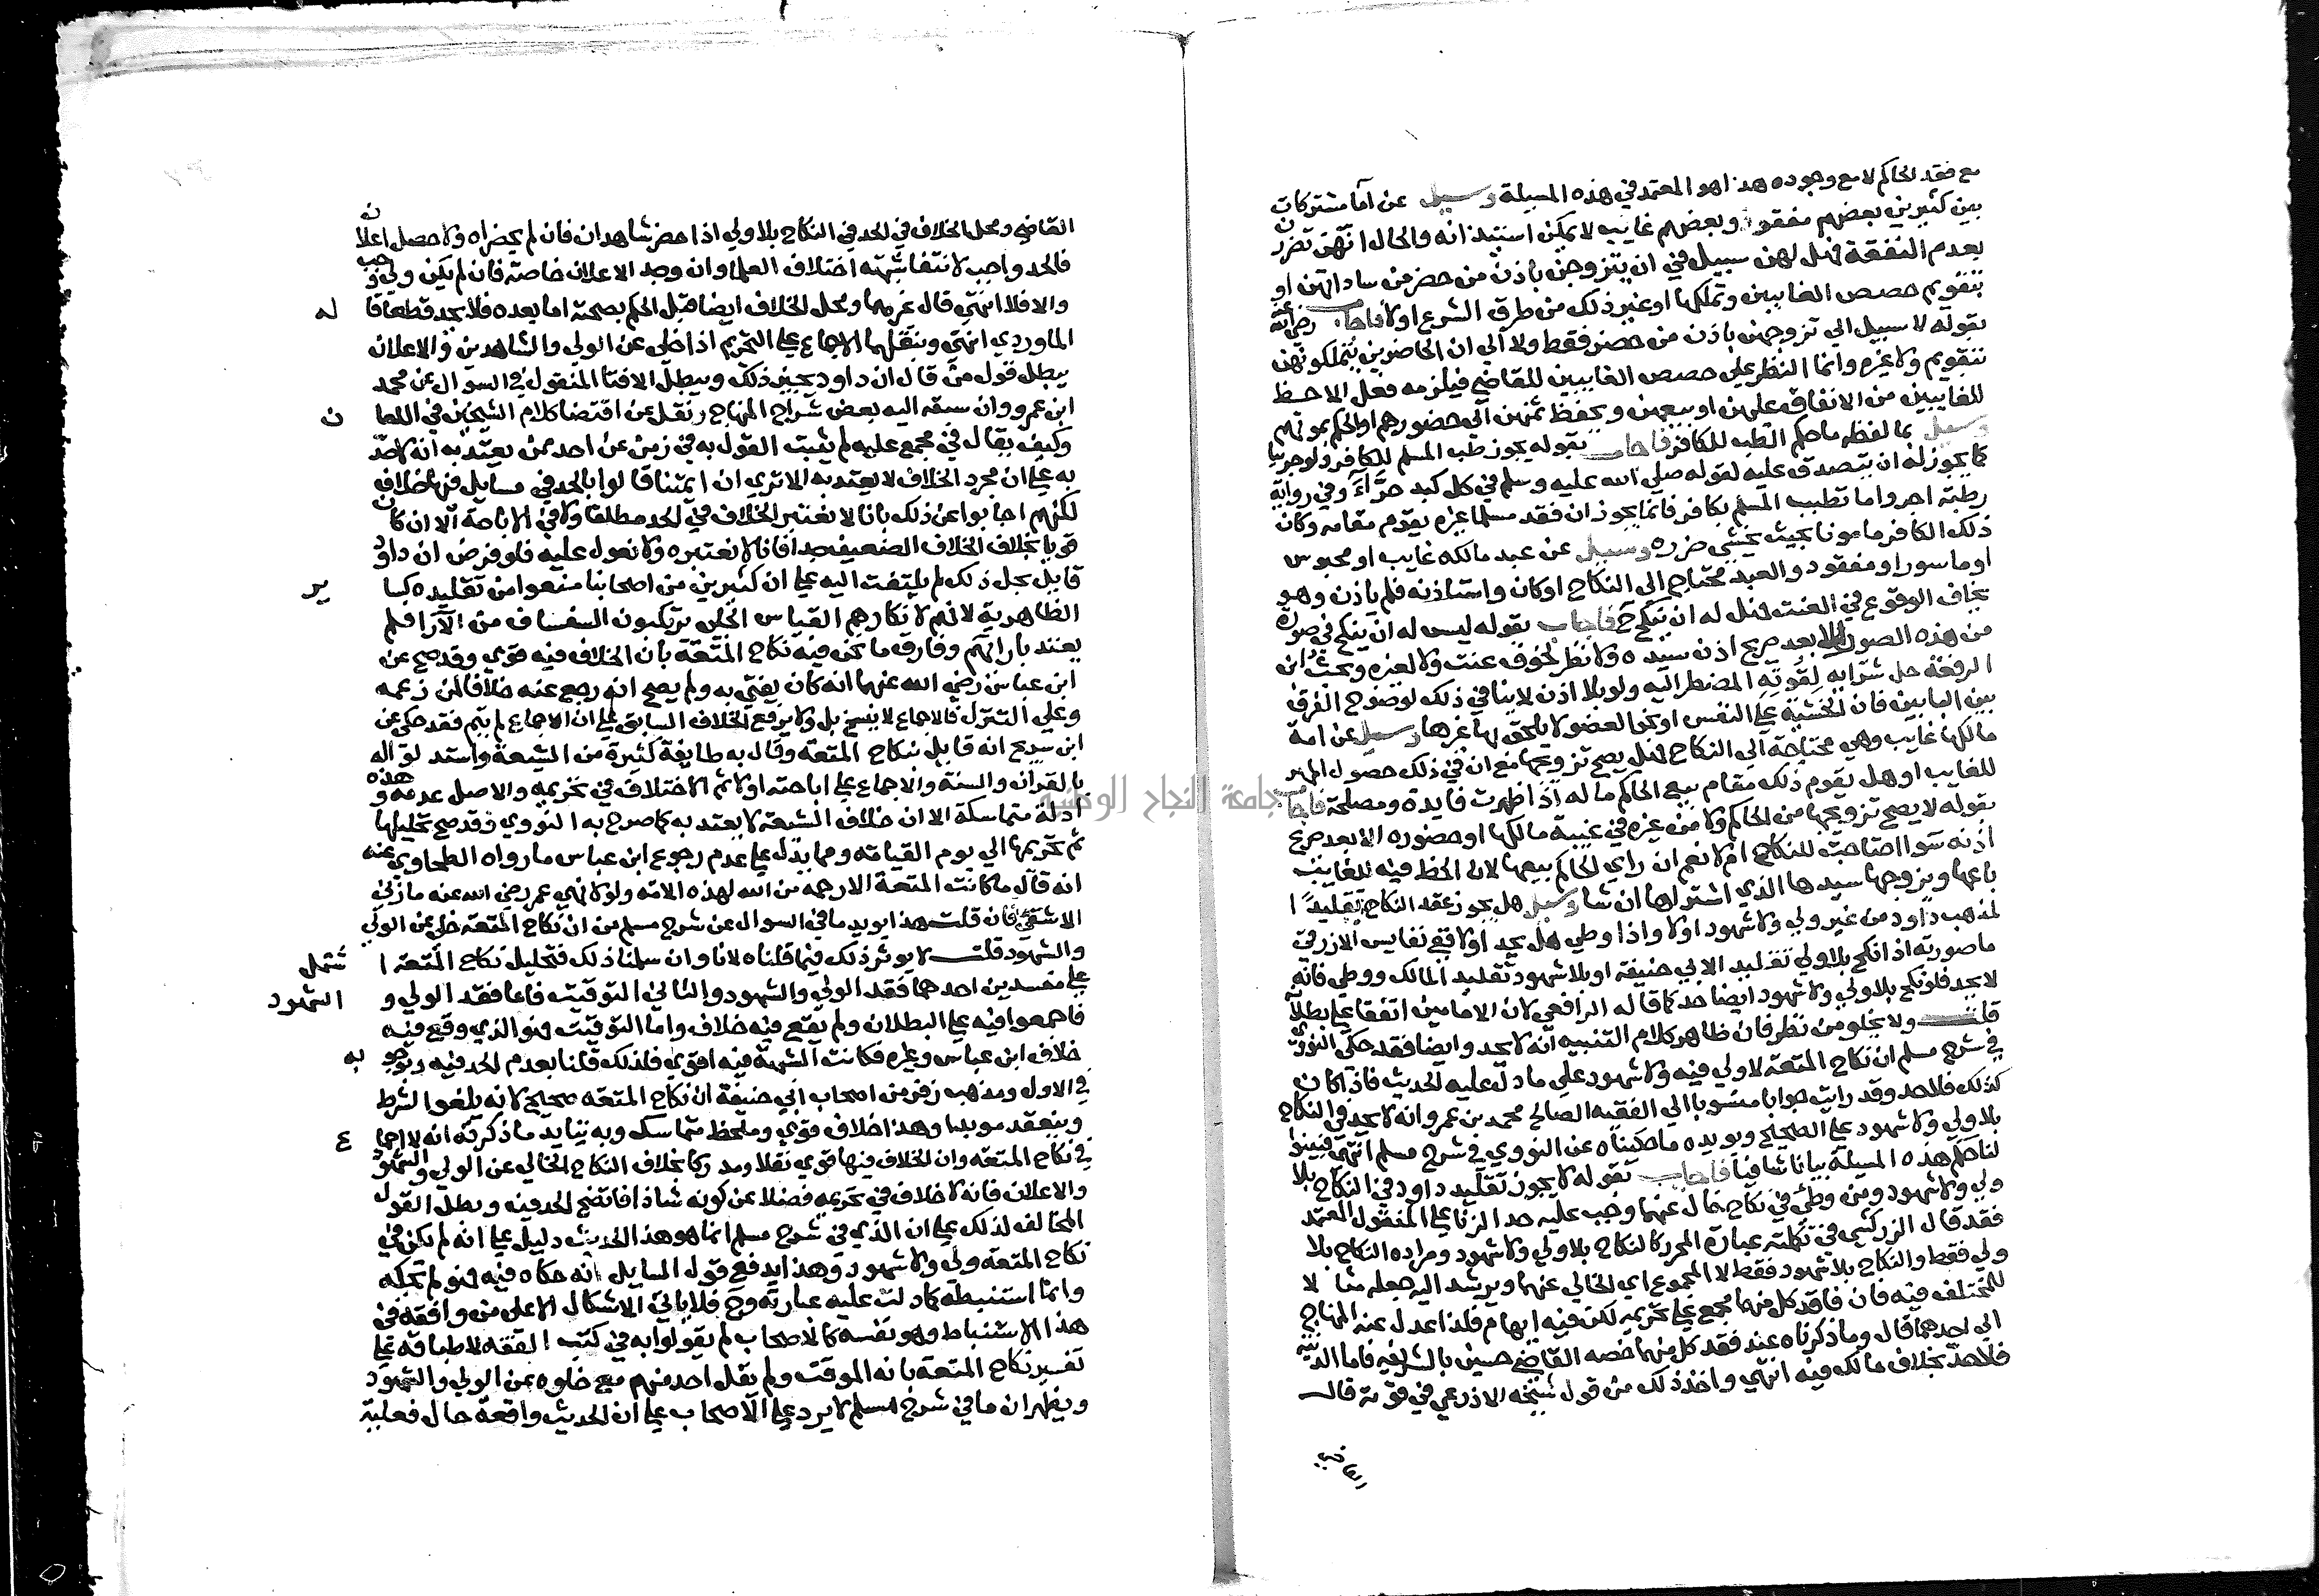 مع فقد الحاكم لا مع وجوده هذا هو المعتمد في هذه المسيلة وسيل عن آما مشتركات
بين كثيرين بعضهم مفقود وبعضهم غايب لا يمكن استيذانه والحال انهن تضررن
بعدم النفقة فهل لهن سبيل في ان يتزوجن باذن من حضر من ساداتهن او
بتقويم حصص الغايبين وتملكها او غير ذلك من طرق الشرع اولا فاجاب رضي الله عنه
بقوله لا سبيل الي تزوجهن باذن من حضر فقط ولا الي ان الحاضرين يتملكونهن
بتقويم ولا غيره وانما النظر علي حصص الغايبين للقاضي فيلزمه فعل الاحظ
للغايبين من الانفاق عليهن او بيعهن وحفظ ثمنهن الي حضورهم او الحكم بموتهم
وسيل بما لفظه ما حكم الطب للكافر فاجاب بقوله يجوز طب المسلم للكافر ولو حربيا
كما يجوز له ان يتصدق عليه لقوله صلي الله عليه وسلم في كل كبد حرّاء وفي رواية
رطبة اجر واما تطبب المسلم بكافر فانما يجوز ان فقد مسلما غيره يقوم مقامه وكان
ذلك الكافر مامونا بحيث يخشي ضرره وسيل عن عبد مالكه غايب او محبوس
او ماسورا ومفقود والعبد محتاج الي النكاح او كان واستاذنه فلم ياذن وهو
يخاف الوقوع في العنت فهل له ان ينكح فاجاب بقوله ليس له ان ينكح في صورة
من هذه الصور الا بعد صريح اذن سيده ولا نظر لخوف عنت ولا لغيره وبحث ابن
الرفعة حل شرابه لقوته المضطر اليه ولو بلا اذن لا ينافي ذلك لوضوح الفرق
بين البابين فان الخشية علي النفس او نحو العضو لا يلحق بها غيرها وسيل عن امة
مالكها غايب وهي محتاجة الي النكاح فهل يصح تزويجها مع ان في ذلك حصول المهر
للغايب او هل يقوم ذلك مقام بيع الحاكم ما له اذا ظهرت فايدة ومصلحة فاجاب
بقوله لا يصح تزويجها من الحاكم ولا من غيره في غيبة مالكها او حضوره الا بعد صريح
اذنه سوا احتاجت للنكاح ام لا نعم ان راي الحاكم بيعها لان الحظ فيه للغايب
باعها ويزوجها سيدها الذي اشتراها ان شا وسيل هل يجوز عقد النكاح تقليدا
لمذهب داود من غير ولي ولا شهود اولا واذا وطي هل يحد اولا ففي نفايس الازرقي
ما صورته اذا نكح بلا ولي تقليد الابي حنيفة او بلا شهود تقليد المالك ووطي فانه
لا يحد فلو نكح بلا ولي ولا شهود ايضا حد كما قاله الرافعي لان الامامين اتفقا علي بطلانه
قلت ولا يخلو من نظر فان ظاهر كلام التنبيه انه لا يحد وايضا فقد حكي النووي
في شرح مسلم ان نكاح المتعة لا ولي فيه ولا شهود علي ما دل عليه الحديث فاذا كان
كذلك فلا حد وقد رايت جوابا منسوبا الي الفقيه الصالح محمد بن عمر وانه لا يحد في النكاح
بلا ولي ولا شهود علي الصحيح ويويده ما حكيناه عن النووي في شرح مسلم انتهي فبينوا
لنا حكم هذه المسيلة بيانا شافيا فاجاب بقوله لا يجوز تقليد داود في النكاح بلا
ولي ولا شهود ومن وطئ في نكاح خال عنهما وجب عليه حد الزنا علي المنقول المعتمد
فقد قال الزركشي في تكملته عبارة المحرر كالنكاح بلا ولي ولا شهود ومراده النكاح بلا
ولي فقط والنكاح بلا شهود فقط لا المجموع اي الخالي عنهما ويرشد اليه جعله مثالا
للمختلف فيه فان فاقد كل منهما مجمع علي تحريمه لكن فيه ابهام فلذا عدل عنه المنهاج
الي احدهما قال وما ذكرناه عند فقد كل منهما خصه القاضي حسين بالشريفه فاما الدنيه
فلا حد بخلاف مالك فيه انتهي واخذ ذلك من قول شيخه الاذرعي في قوته قال
القاضي ومحل الخلاف في الحد في النكاح بلا ولي اذا حضر شاهدان فان لم يحضراه ولا حصل اعلان
فالحد واجب لانتفا شبهة اختلاف العلما وان وجد الاعلان خاصة فان لم يكن ولي وجب
والا فلا انتهي قال غيرهما ومحل الخلاف ايضا قبل الحكم بصحته اما بعده فلا يحد قطعا قاله
الماوردي انتهي وبنقلهما الاجماع علي التحريم اذا خلى عن الولي والشاهدين والاعلان
يبطل قول من قال ان داود يجيز ذلك ويبطل الافتا المنقول في السوال عن محمد
ابن عمر ووان سبقه اليه بعض شراح المنهاج ونقل عن اقتضا كلام الشيخين في اللعان
وكيف يقال في مجمع عليه لم يثبت القول به في زمن عن احد ممن يعتد به انه لا حد
به علي ان مجرد الخلاف لا يعتد به الا تري ان ايمتنا قالوا بالحد في مسايل فيها خلاف
لكنهم اجابوا عن ذلك بانا لا نعتبر الخلاف في الحد مطلقا ولا في الاباحة الا ان كان
قويا بخلاف الخلاف الضعيف جدا فانا لا نعتبره ولا نعول عليه فلو فرض ان داود
قايل بحل ذلك لم يلتفت اليه علي ان كثيرين من اصحابنا منعوا من تقليده كساير
الظاهرية لانهم لانكارهم القياس الجلي يرتكبون السفساف من الآرا فلم
يعتد بارائهم وفارق ما نحن فيه نكاح المتعة بان الخلاف فيه قوي وقد صح عن
ابن عباس رضي الله عنهما انه كان يفتي به ولم يصح انه رجع عنه خلافا لمن زعمه
وعلي التنزل فالاجماع لا ينسخ بل ولا يرفع الخلاف السابق علي ان الاجماع لم يتم فقد حكي عن
ابن سريج انه قايل بنكاح المتعة وقال به طايفة كثيرة من الشيعة واستد لوا له
بالقران والسنة والاجماع علي اباحته اولا ثم الاختلاف في تحريمه والاصل عدمه وهذه
ادلة متماسكة الا ان خلاف الشيعة لا يعتد به كما صرح به النووي فقد صح تحليلها
ثم تحريمها الي يوم القيامة ومما يدل علي عدم رجوع ابن عباس ما رواه الطحاوي عنه
انه قال ما كانت المتعة الا رحمه من الله لهذه الامة ولولا نهي عمر رضي الله عنه ما زني
الا شقي فان قلت هذا يويد ما في السوال عن شرح مسلم من ان نكاح المتعة خلي عن الولي
والشهود قلت لا يوثر ذلك فيما قلناه لانا وان سلمنا ذلك فتحليل نكاح المتعة اشتمل
علي مفسدين احدهما فقد الولي والشهود والثاني التوقيت فاما فقد الولي والشهود
فاجمعوا فيه علي البطلان ولم يقع فيه خلاف واما التوقيت فهو الذي وقع فيه
خلاف ابن عباس وغيره فكانت الشبهة فيه اقوي فلذلك قلنا بعدم الحد فيه وبوجوبه
في الاول ومذهب زفر من اصحاب ابي حنيفة ان نكاح المتعة صحيح لانه يلغوا الشرط
وينعقد موبدا وهذا خلاف قوي وملحظ متماسك وبه يتايد ما ذكرته انه لا اجماع
في نكاح المتعه وان الخلاف فيها قوي نقلا ومدركا بخلاف النكاح الخالي عن الولي والشهود
والاعلان فانه لا خلاف في تحريمه فضلا عن كونه شاذا فاتضح الحد فيه وبطل القول
المخالف لذلك علي ان الذي في شرح مسلم انما هو هذا الحديث دليل علي انه لم يكن في
نكاح المتعة ولي ولا شهود وهذا يدفع قول السايل انه حكاه فيه فهو لم يحكه
وانما استنبطه كما دلت عليه عبارته وح فلا ياتي الاشكال الا علي من وافقه في
هذا الاستنباط وهو نفسه كالاصحاب لم يقولوا به في كتب الفقه لاطباقه علي
تفسير نكاح المتعة بانه الموقت ولم يقل احد منهم مع خلوه عن الولي والشهود
ويظهر ان ما في شرح مسلم لا يرد علي الاصحاب علي ان الحديث واقعة حال فعلية
جامعة النجاح الوطنية